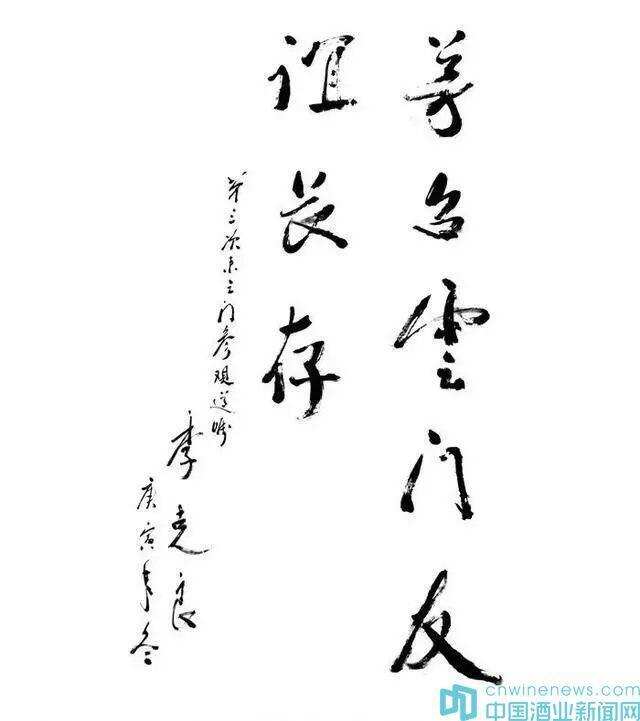 茅台雲门友
谊长存
第三次来云门参观遵嘱
季克良
庚寅年冬
cnwinenews.com
中国酒业新闻网